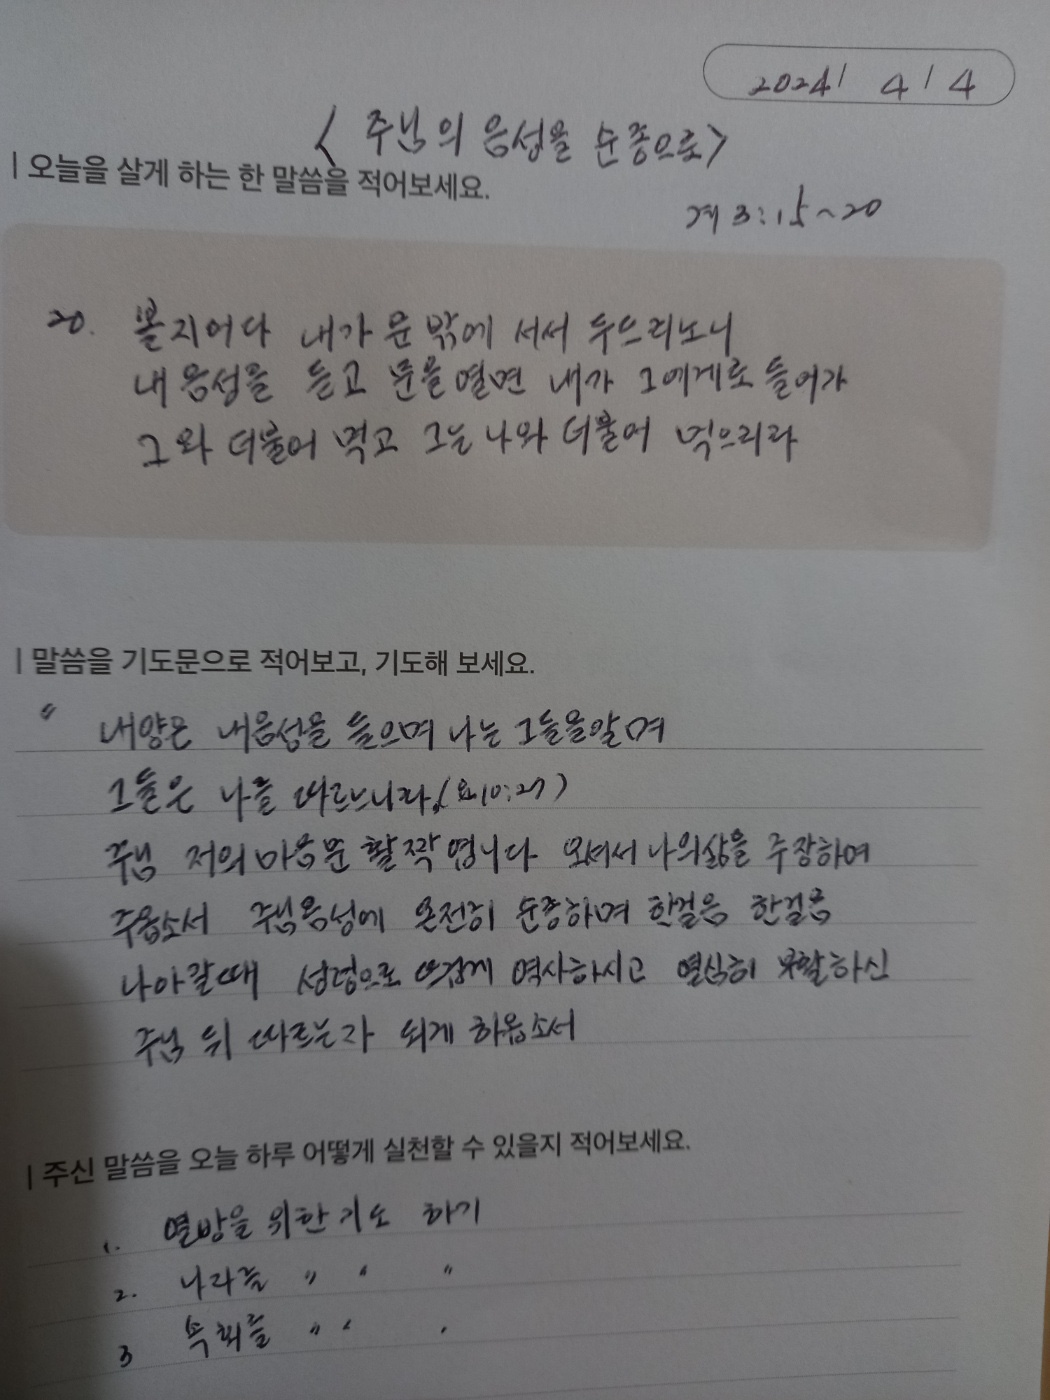 2024/ 4/4
<주님의 음성을 순종으로>
| 오늘을 살게 하는 한 말씀을 적어보세요.
계 3:15~20
20. 볼지어다 내가 문 밖에 서서 두드리노니
내 음성을 듣고 문을 열면 내가 그에게로 들어가
그와 더불어 먹고 그는 나와 더불어 먹으리라
| 말씀을 기도문으로 적어보고, 기도해 보세요.
" 내양은 내음성을 들으며 나는 그들을알며
그들은 나를 따르느니라.(요10:27)
주님 저의 마음문 활짝 엽니다 오셔서 나의삶을 주장하여
주옵소서 주님음성에 온전히 순종하며 한걸음 한걸음
나아갈때 성령으로 뜨겁게 역사하시고 열심히 부활하신
주님 뒤 따르는자 되게 하옵소서
| 주신 말씀을 오늘 하루 어떻게 실천할 수 있을지 적어보세요.
1. 열방을 위한 기도 하기
2. 나라를 " " "
3 " "